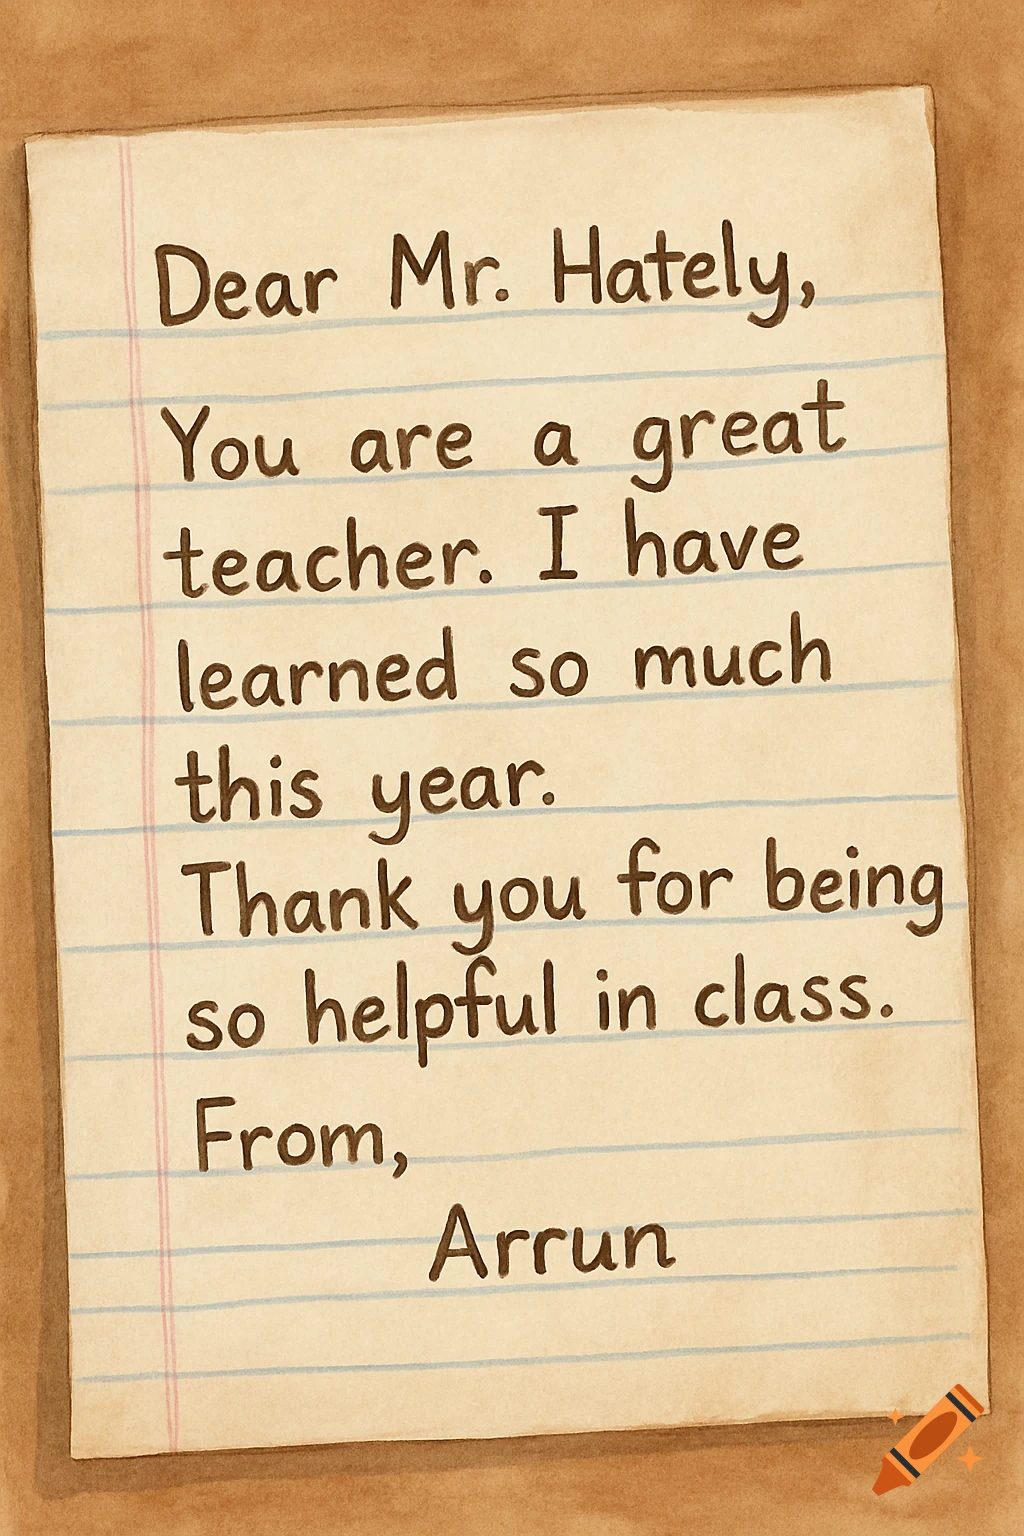 Dear Mr. Hately,
You are a great
teacher. I have
learned so much
this year.
Thank you for being
so helpful in class.
From,
Arrun